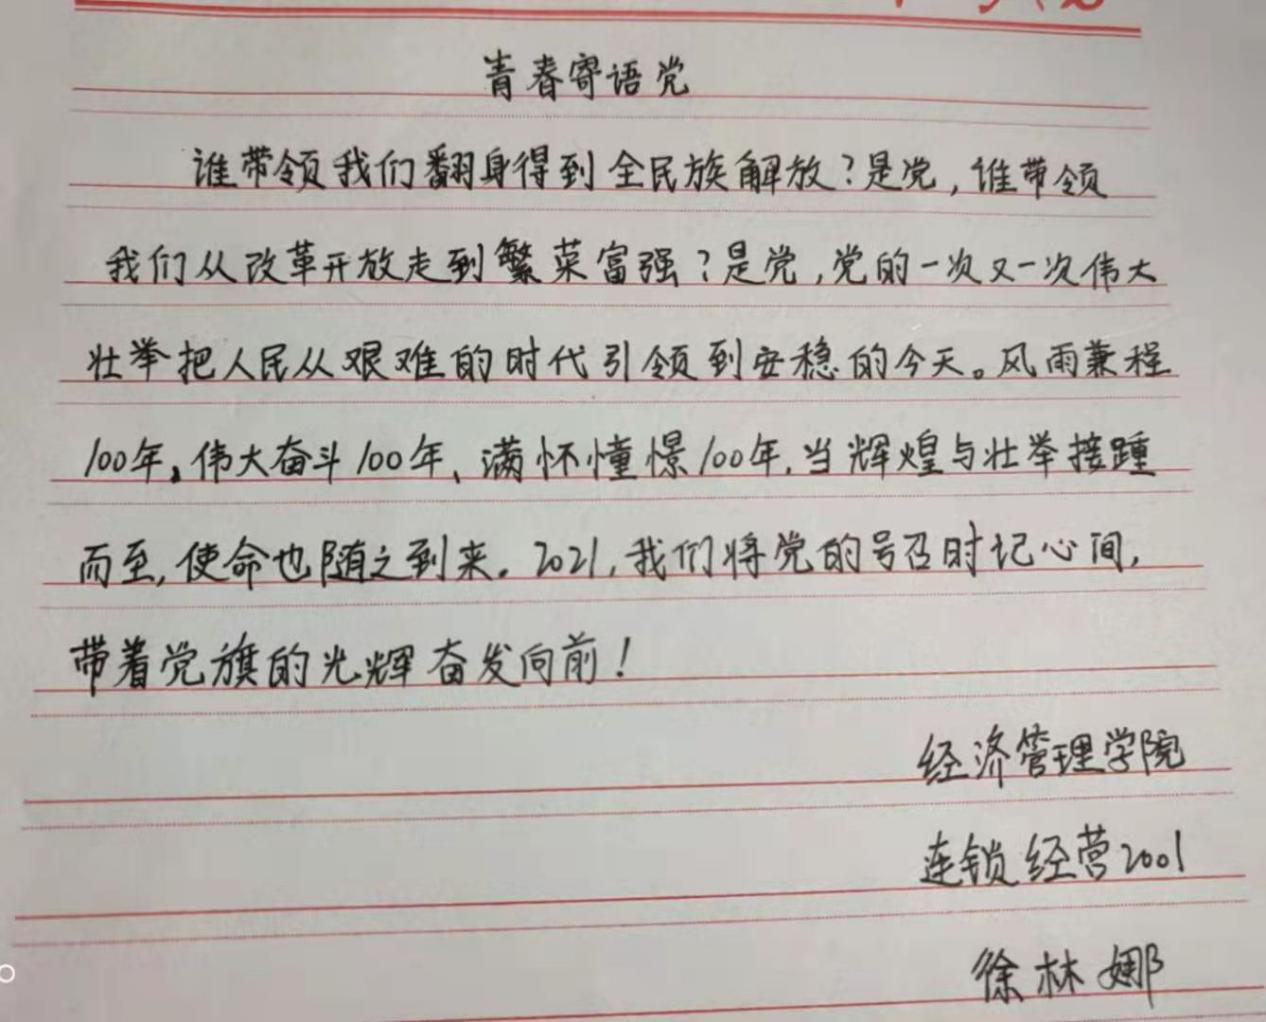 青春寄语党
谁带领我们翻身得到全民族解放？是党，谁带领
我们从改革开放走到繁菜富强？是党，党的一次又一次伟大
壮举把人民从艰难的时代引领到安稳的今天。风雨兼程
100年，伟大奋斗100年、满怀憧憬100年，当辉煌与壮举接踵
而至，使命也随之到来。2021，我们将党的号召时记心间，
带着党旗的光辉奋发向前！
经济管理学院
连锁经营2001
徐林娜